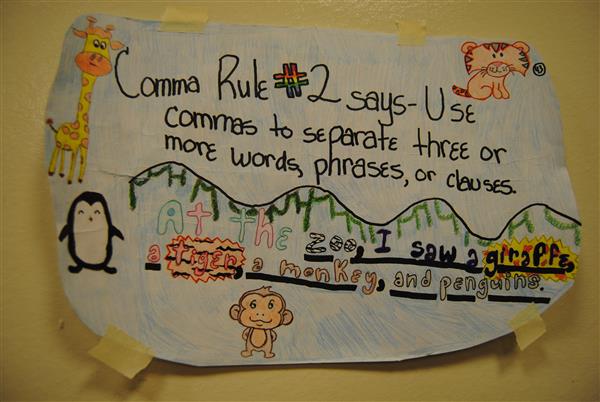 Comma Rule #2 says- Use
commas to separate three or
more words, phrases, or clauses.
At the zoo, I saw a giraffe,
a tiger, a monkey, and penguins.